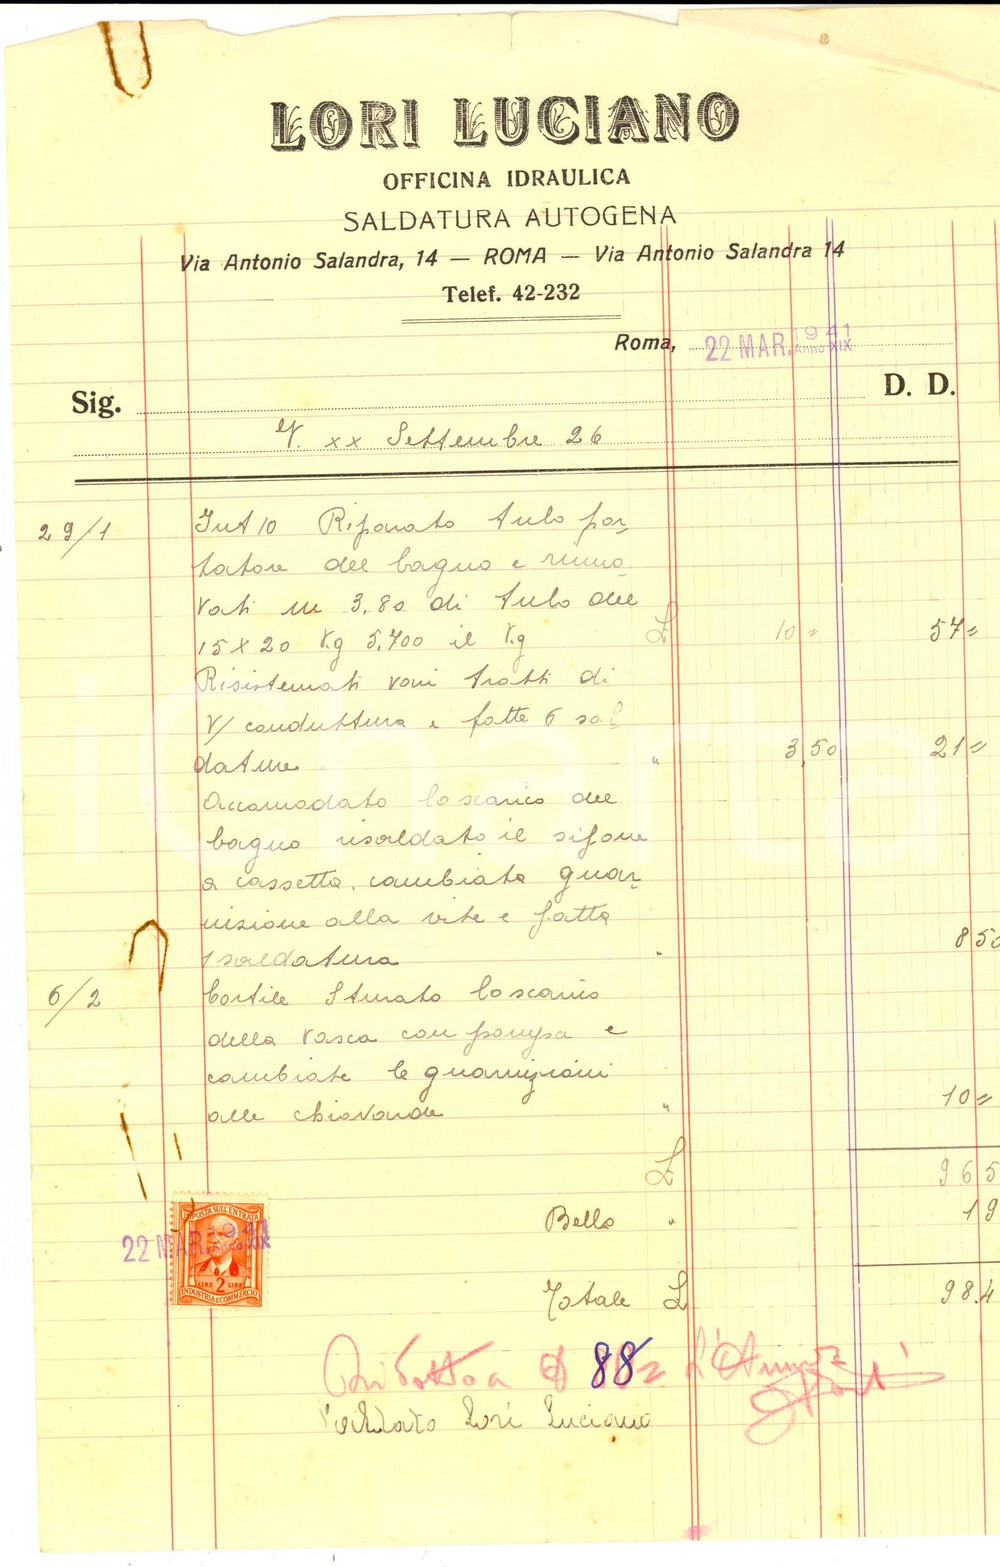 LORI LUCIANO
OFFICINA IDRAULICA
SALDATURA AUTOGENA
Via Antonio Salandra, 14 — ROMA — Via Antonio Salandra 14
Telef. 42-232
Roma, 22 MAR. 1941 Anno XIX
Sig. D. D.
V. xx Settembre 26
29/1 Int 10 Riparato tubo por
tatore del bagno e rinno
vati m 3,80 di tubo del
15 x 20 Kg 5,700 il Kg £ 10 = 57 =
Risistemati vari tratti di
V/ conduttura e fatte 6 sal
dature " 3,50 21 =
Accomodato lo scarico del
bagno risaldato il sifone
a cassetta, cambiata guar
nizione alla vite e fatta
1 saldatura " 8 50
6/2 Cortile Sturato lo scarico
della vasca con pompa e
cambiate le guarnizioni
alle chiavarde " 10 =
£ 96 5
Bollo " 1 9
Totale £ 98.4
IMPOSTA SULL'ENTRATA
22 MAR. 1941 Anno XIX
LIRE 2 LIRE
INDUSTRIA E COMMERCIO
Ridotto a £ 88 =
Saldato Lori Luciano